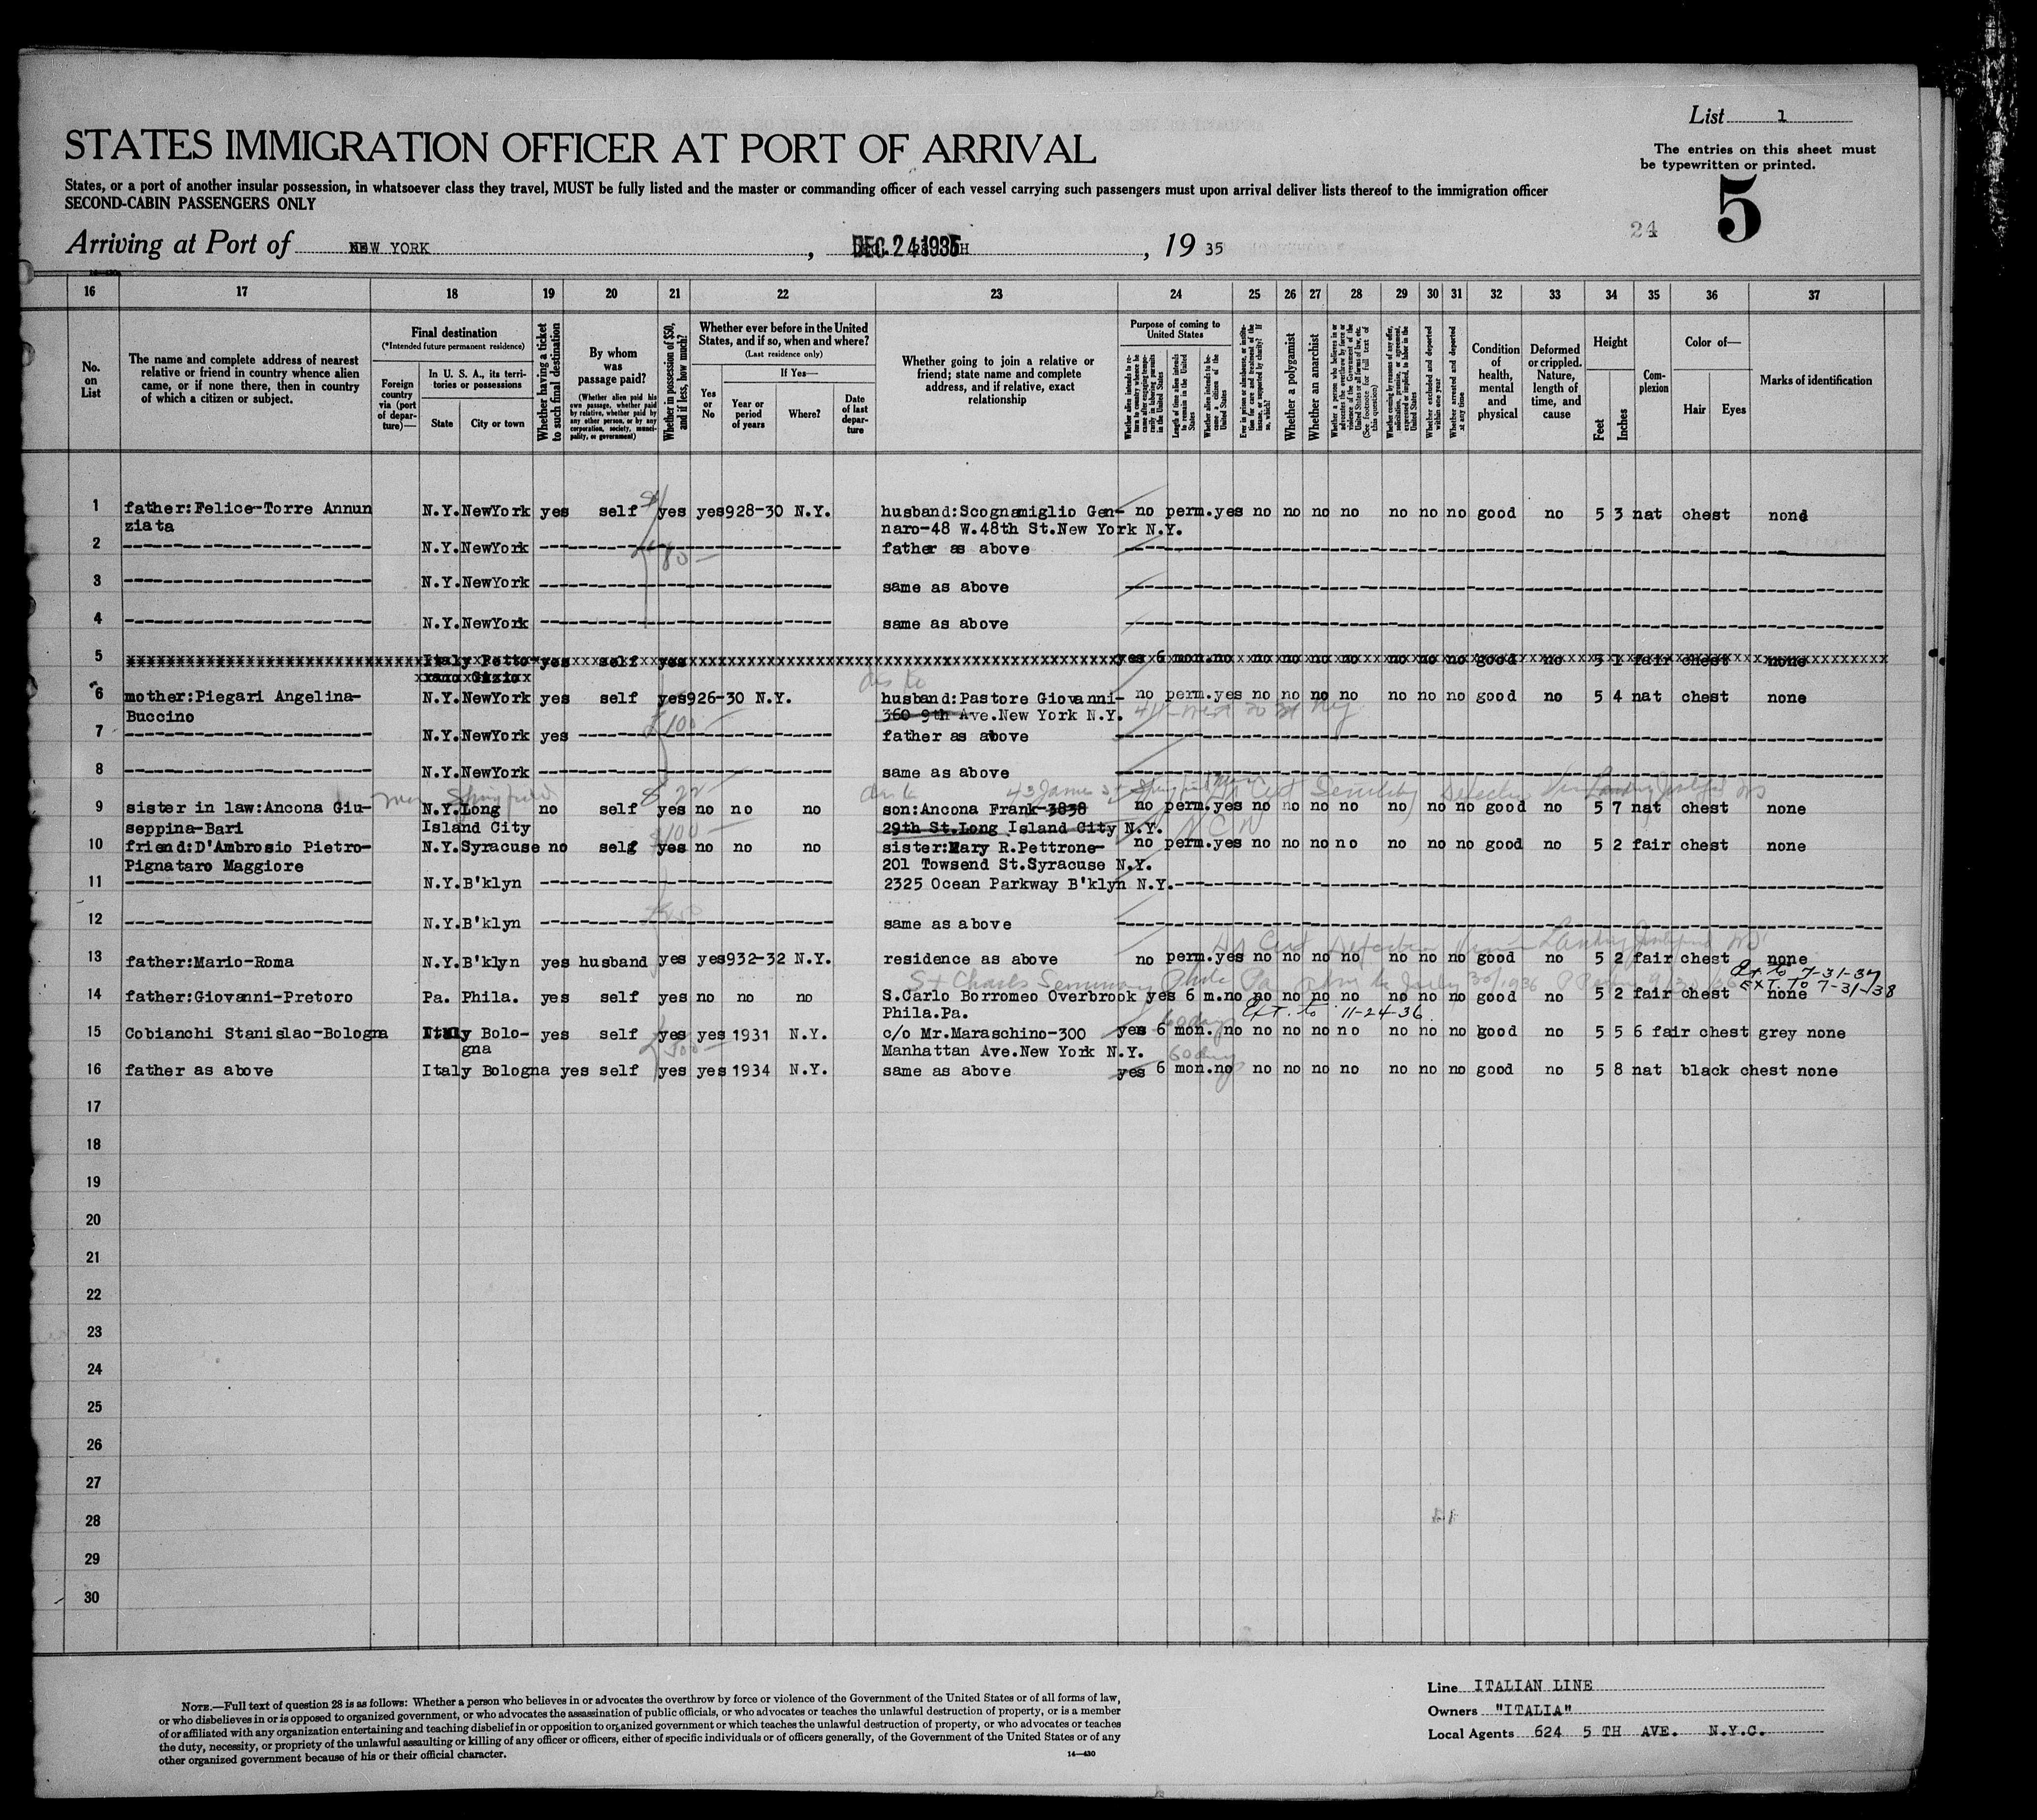 List 1
The entries on this sheet must
be typewritten or printed.
STATES IMMIGRATION OFFICER AT PORT OF ARRIVAL
5
States, or a port of another insular possession, in whatsoever class they travel, MUST be fully listed and the master or commanding officer of each vessel carrying such passengers must upon arrival deliver lists thereof to the immigration officer
SECOND-CABIN PASSENGERS ONLY
24
Arriving at Port of NEW YORK, DEC 24 1935, 19 35
16 17 18 19 20 21 22 23 24 25 26 27 28 29 30 31 32 33 34 35 36 37
No. on List
The name and complete address of nearest relative or friend in country whence alien came, or if none there, then in country of which a citizen or subject.
Final destination
(*Intended future permanent residence)
Foreign country via (port of departure)—
In U. S. A., its territories or possessions
State
City or town
Whether having a ticket to such final destination
By whom was passage paid?
(Whether alien paid his own passage, whether paid by relative, whether paid by any other person, or by any corporation, society, municipality, or government)
Whether in possession of $50, and if less, how much?
Whether ever before in the United States, and if so, when and where?
(Last residence only)
If Yes—
Yes or No
Year or period of years
Where?
Date of last departure
Whether going to join a relative or friend; state name and complete address, and if relative, exact relationship
Purpose of coming to United States
Whether alien intends to return to country whence he came after engaging temporarily in laboring pursuits in the United States
Length of time alien intends to remain in the United States
Whether alien intends to become a citizen of the United States
Ever in prison or almshouse, or institution for care and treatment of the insane, or supported by charity? If so, which?
Whether a polygamist
Whether an anarchist
Whether a person who believes in or advocates the overthrow by force or violence of the Government of the United States or all forms of law, etc. (See footnote for full text of this question)
Whether coming by reason of any offer, solicitation, promise, or agreement, expressed or implied, to labor in the United States
Whether excluded and deported within one year
Whether arrested and deported at any time
Condition of health, mental and physical
Deformed or crippled. Nature, length of time, and cause
Height
Feet
Inches
Complexion
Color of—
Hair
Eyes
Marks of identification
1 father:Felice-Torre Annun N.Y. NewYork yes self yes yes 928-30 N.Y. husband:Scognamiglio Gen- no perm. yes no no no no no no no good no 5 3 nat chest none
ziata naro-48 W.48th St.New York N.Y.
2 N.Y. NewYork father as above
80
3 N.Y. NewYork same as above
4 N.Y. NewYork same as above
5 Italy Petto- yes self yes yes 6 mon. no no no no no no no no good no 5 1 fair chest none
rano Gizio
6 mother:Piegari Angelina- N.Y. NewYork yes self yes 926-30 N.Y. husband:Pastore Giovanni- no perm. yes no no no no no no no good no 5 4 nat chest none
Buccino 360 9th Ave.New York N.Y.
100
7 N.Y. NewYork yes father as above
8 N.Y. NewYork same as above
Springfield 43 James St
9 sister in law:Ancona Giu- N.Y. Long no self yes no no no son:Ancona Frank-3838 no perm. yes no no no no no no no good no 5 7 nat chest none
seppina-Bari Island City 29th St.Long Island City N.Y.
100
10 friend:D'Ambrosio Pietro- N.Y. Syracuse no self yes no no no sister:Mary R.Pettrone- no perm. yes no no no no no no no good no 5 2 fair chest none
Pignataro Maggiore 201 Towsend St.Syracuse N.Y.
11 N.Y. B'klyn 2325 Ocean Parkway B'klyn N.Y.
12 N.Y. B'klyn same as above
13 father:Mario-Roma N.Y. B'klyn yes husband yes yes 932-32 N.Y. residence as above no perm. yes no no no no no no no good no 5 2 fair chest none
Ext. to 7-31-37
St Charles Seminary Phila Pa
14 father:Giovanni-Pretoro Pa. Phila. yes self yes no no no S.Carlo Borromeo Overbrook yes 6 m. no no no no no no no no good no 5 2 fair chest none
EXT. TO 7-31-38
Phila.Pa. Ext. to 11-24-36
60 days
15 Cobianchi Stanislao-Bologna Italy Bolo- yes self yes yes 1931 N.Y. c/o Mr.Maraschino-300 yes 6 mon. no no no no no no no no good no 5 5 6 fair chest grey none
gna Manhattan Ave.New York N.Y.
60 days
16 father as above Italy Bologna yes self yes yes 1934 N.Y. same as above yes 6 mon. no no no no no no no no good no 5 8 nat black chest none
17
18
19
20
21
22
23
24
25
26
27
28
29
30
NOTE.—Full text of question 28 is as follows: Whether a person who believes in or advocates the overthrow by force or violence of the Government of the United States or of all forms of law,
or who disbelieves in or is opposed to organized government, or who advocates the assassination of public officials, or who advocates or teaches the unlawful destruction of property, or is a member
of or affiliated with any organization entertaining and teaching disbelief in or opposition to organized government or which teaches the unlawful destruction of property, or who advocates or teaches
the duty, necessity, or propriety of the unlawful assaulting or killing of any officer or officers, either of specific individuals or of officers generally, of the Government of the United States or of any
other organized government because of his or their official character.
14—430
Line ITALIAN LINE
Owners "ITALIA"
Local Agents 624 5 TH AVE. N.Y.C.